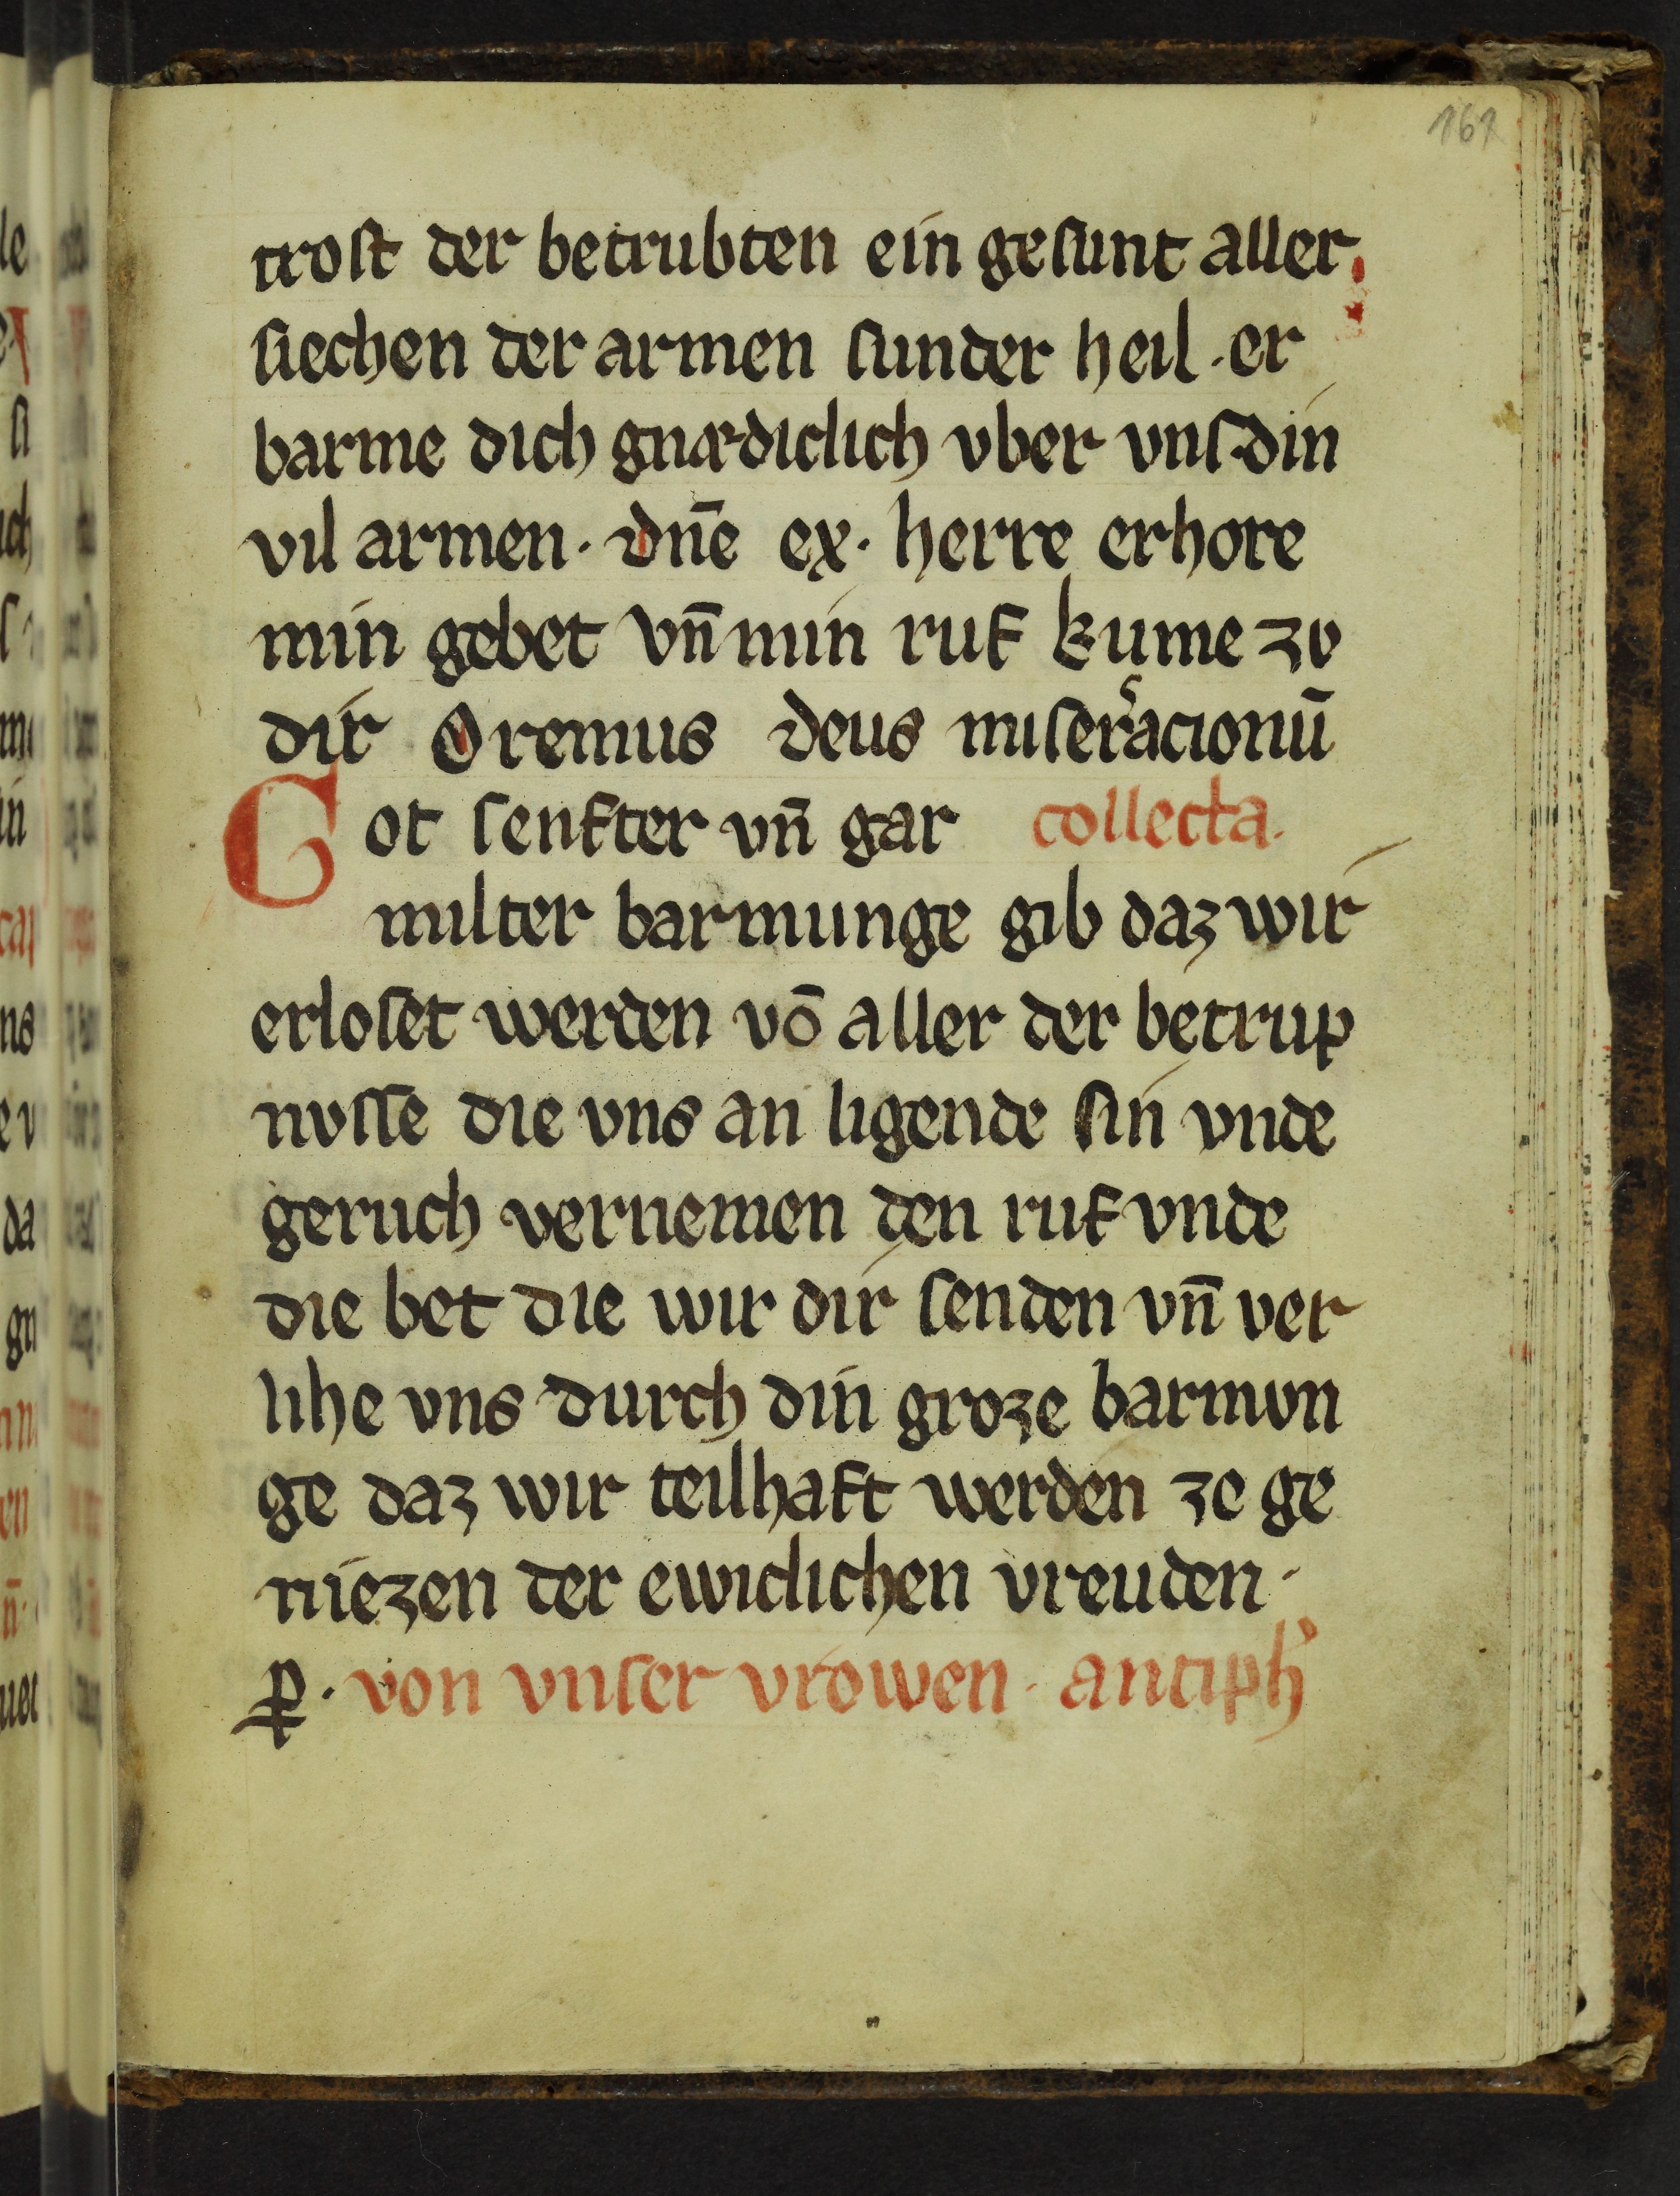 161
troſt der betrubten ein geſunt aller
ſiechen der armen ſunder heil · er
barme dich gnædiclich vber vnſ din
vil armen · dn̄e ex · herre erhore
min gebet vn̄ min ruf kume zo
dir Oremus deus miſeracionū
Got ſenfter vn̄ gar collecta.
milter barmunge gib daz wir
erloſet werden vō aller der betrup
nvſſe die vns an ligende ſin vnde
geruch vernemen den ruf vnde
die bet die wir dir ſenden vn̄ ver
lihe vns durch din groze barmvn
ge daz wir teilhaft werden ze ge
niezen der ewiclichen vreuden ·
von vnſer vrowen · antiph